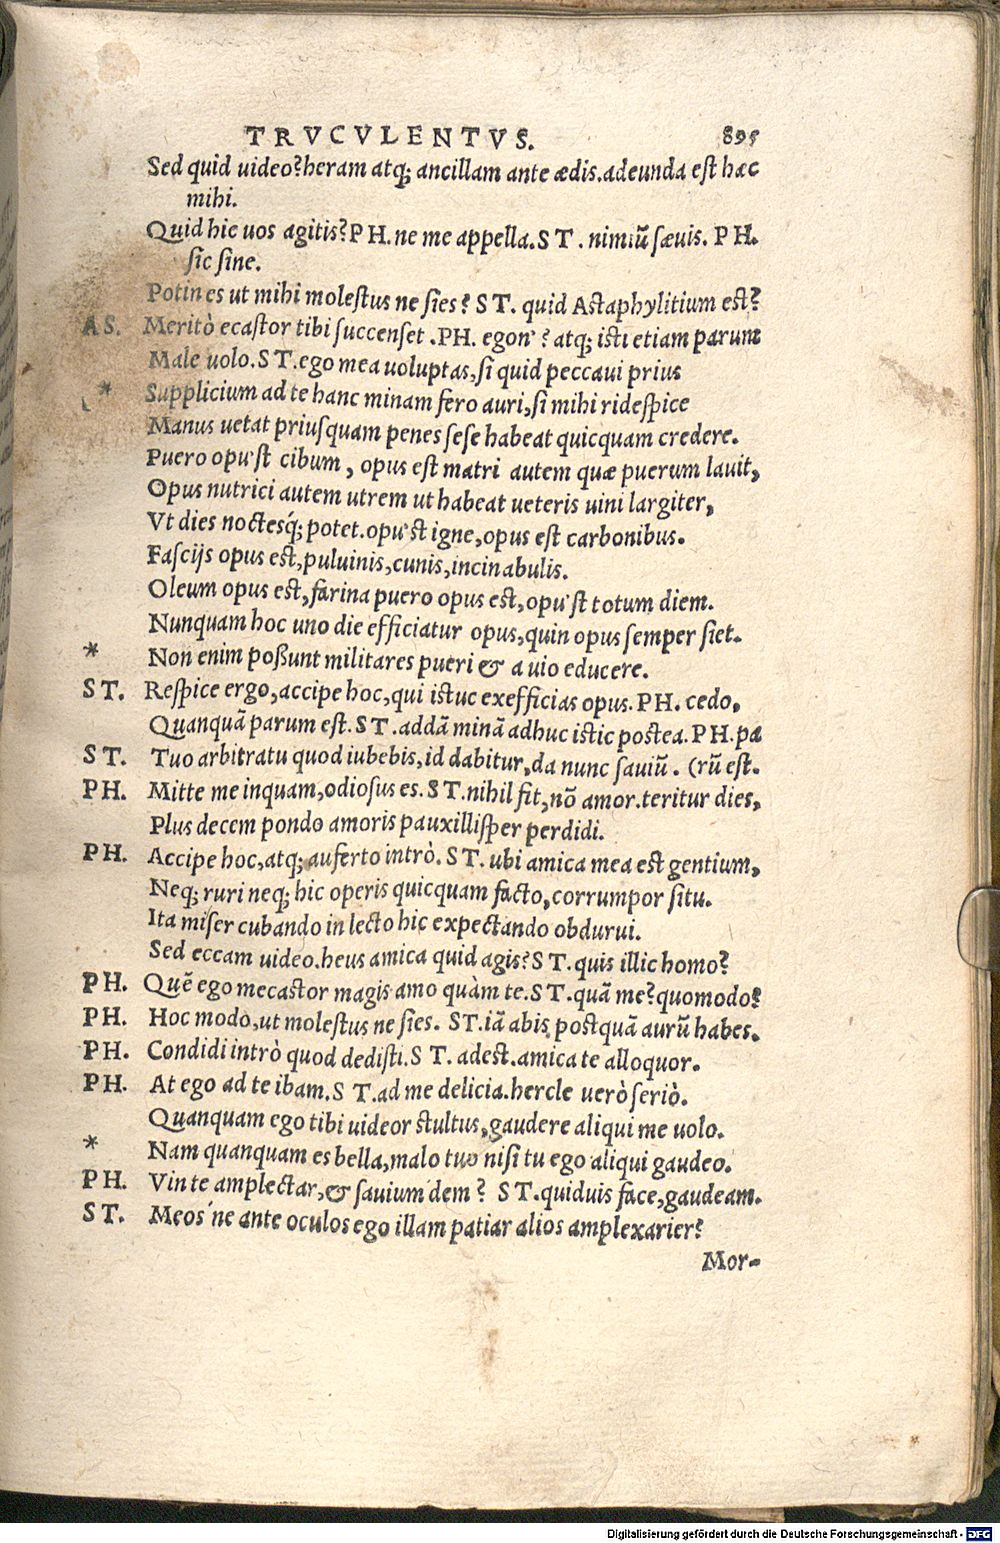 TRVCVLENTVS. 895
Sed quid uideo? heram atq; ancillam ante ædis. adeunda est hæc
mihi.
Quid hic uos agitis? PH. ne me appella. ST. nimiũ sæuis. PH.
sic sine.
Potin es ut mihi molestus ne sies? ST. quid Astaphylitium est?
AS. Meritò ecastor tibi succenset. PH. egon'? atq; isti etiam parum
Male uolo. ST. ego mea uoluptas, si quid peccaui prius
* Supplicium ad te hanc minam fero auri, si mihi ridespice
Manus uetat priusquam penes sese habeat quicquam credere.
Puero opu'st cibum, opus est matri autem quæ puerum lauit,
Opus nutrici autem utrem ut habeat ueteris uini largiter,
Vt dies noctesq́; potet. opu'st igne, opus est carbonibus.
Fascijs opus est, puluinis, cunis, incinabulis.
Oleum opus est, farina puero opus est, opu'st totum diem.
Nunquam hoc uno die efficiatur opus, quin opus semper siet.
* Non enim poßunt militares pueri & auio educere.
ST. Respice ergo, accipe hoc, qui istuc exefficias opus. PH. cedo,
Quanquã parum est. ST. addã minã adhuc istic postea. PH. pa
ST. Tuo arbitratu quod iubebis, id dabitur, da nunc sauiũ. (rũ est.
PH. Mitte me inquam, odiosus es. ST. nihil fit, nõ amor. teritur dies,
Plus decem pondo amoris pauxillisper perdidi.
PH. Accipe hoc, atq; auferto intrò. ST. ubi amica mea est gentium,
Neq; ruri neq; hic operis quicquam facto, corrumpor situ.
Ita miser cubando in lecto hic expectando obdurui.
Sed eccam uideo. heus amica quid agis? ST. quis illic homo?
PH. Quẽ ego mecastor magis amo quàm te. ST. quã me? quomodo?
PH. Hoc modo, ut molestus ne sies. ST. iã abis postquã aurũ habes.
PH. Condidi intrò quod dedisti. ST. adest. amica te alloquor.
PH. At ego ad te ibam. ST. ad me delicia. hercle uerò seriò.
Quanquam ego tibi uideor stultus, gaudere aliqui me uolo.
* Nam quanquam es bella, malo tuo nisi tu ego aliqui gaudeo.
PH. Vin te amplectar, & sauium dem? ST. quiduis face, gaudeam.
ST. Meos'ne ante oculos ego illam patiar alios amplexarier?
Mor-
Digitalisierung gefördert durch die Deutsche Forschungsgemeinschaft - DFG